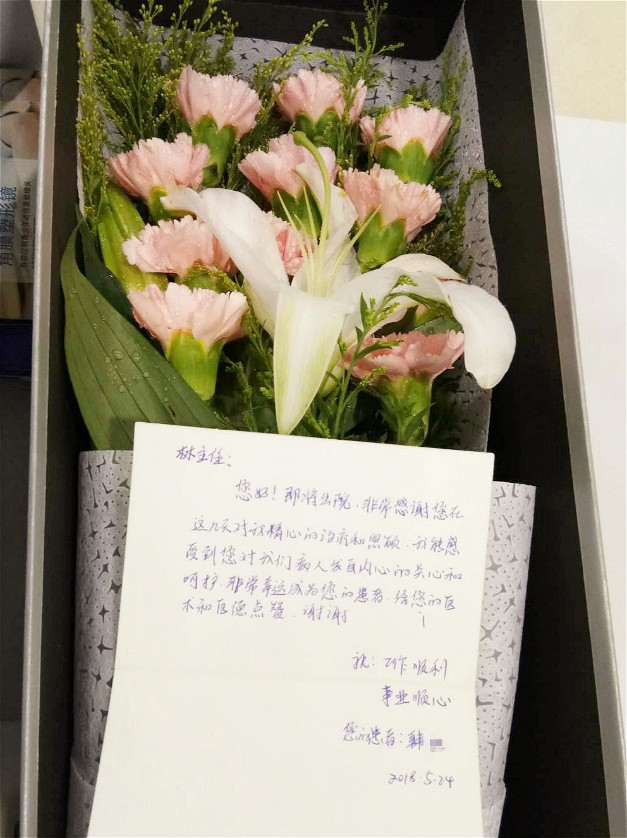 林主任：
您好！即将出院，非常感谢您在
这几天对我精心的治疗和照顾，我能感
受到您对我们病人发自内心的关心和
呵护，非常幸运成为您的患者，给您的医
术和医德点赞，谢谢！
祝：工作顺利
事业顺心
您的患者：韩
2018.5.24
角膜塑形镜